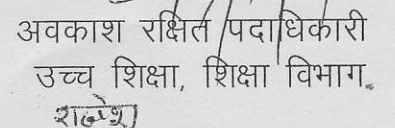 अवकाश रक्षित पदाधिकारी
उच्च शिक्षा, शिक्षा विभाग.